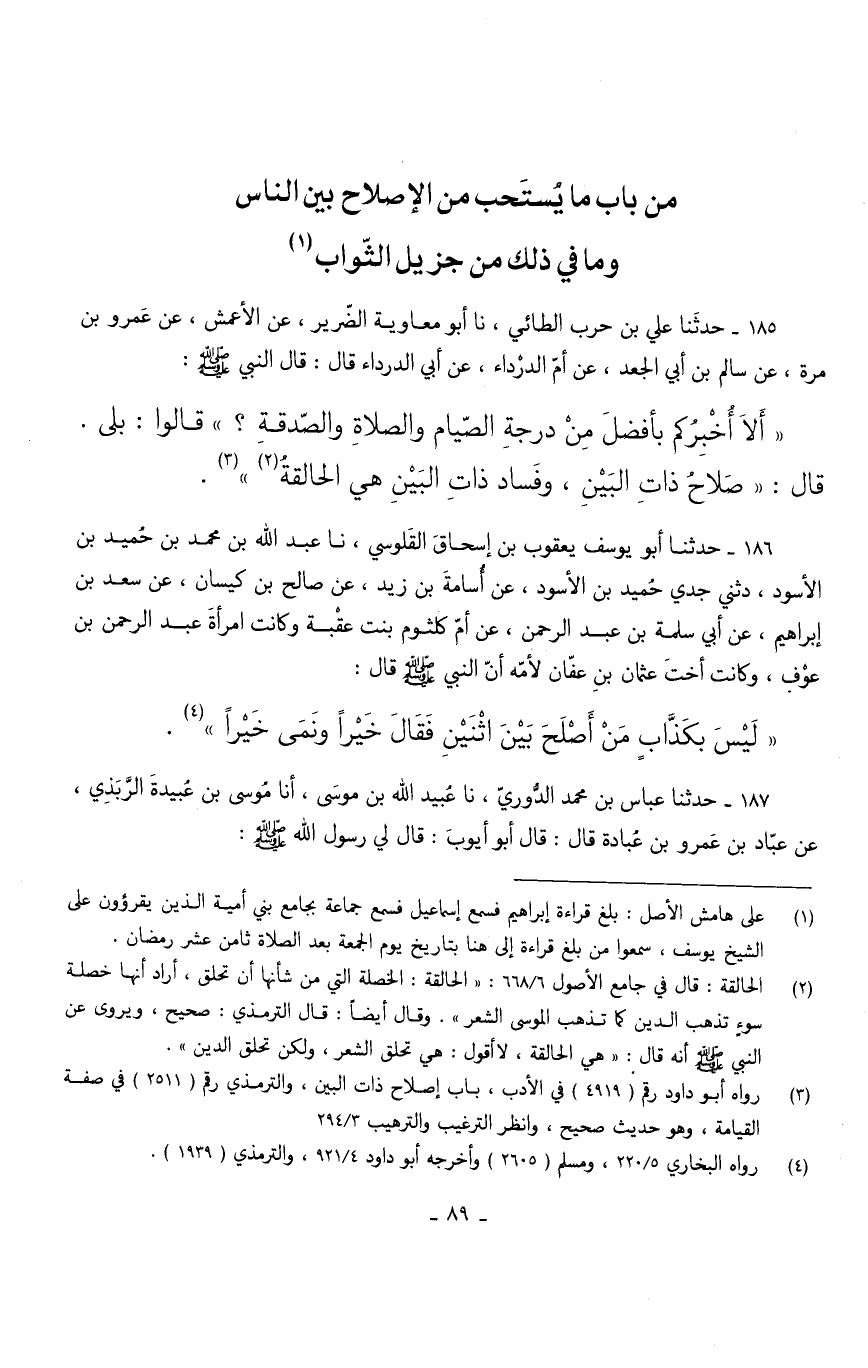 من باب ما يُستَحب من الإصلاح بين الناس
وما في ذلك من جزيل الثّواب(١)
١٨٥ ـ حدثَنا علي بن حرب الطائي ، نا أبو معاوية الضّرير ، عن الأعمش ، عن عَمرو بن
مرة ، عن سالم بن أبي الجعد ، عن أمّ الدرْداء ، عن أبي الدرداء قال : قال النبي ﷺ :
« أَلاَ أُخْبِرُكم بأفضلَ مِنْ درجةِ الصِّيام والصلاةِ والصّدقةِ ؟ » قالوا : بلى .
قال : « صَلاحُ ذاتِ البَيْنِ ، وفَساد ذاتِ البَيْنِ هي الحالقةُ(٢) »(٣) .
١٨٦ ـ حدثنا أبو يوسف يعقوب بن إسحاقَ القَلوسي ، نا عبد الله بن محمد بن حُميد بن
الأسود ، دثني جدي حُميد بن الأسود ، عن أُسامةَ بن زيد ، عن صالح بن كيسان ، عن سعد بن
إبراهيم ، عن أبي سلمة بن عبد الرحمن ، عن أمّ كلثوم بنت عقْبة وكانت امرأةَ عبد الرحمن بن
عوْف ، وكانت أختَ عثمان بنِ عفّان لأمّه أنّ النبي ﷺ قال :
« لَيْسَ بِكَذَّابٍ مَنْ أَصْلَحَ بَيْنَ اثْنَيْنِ فَقَالَ خَيْراً ونَمَى خَيْراً »(٤) .
١٨٧ ـ حدثنا عباس بن محمد الدُّوريّ ، نا عُبيد الله بن موسَى ، أنا مُوسى بن عُبيدةَ الرَّبَذي ،
عن عبّاد بن عَمرو بن عُبادة قال : قال أبو أيوبَ : قال لي رسول الله ﷺ :
(١) على هامش الأصل : بلغ قراءة إبراهيم فسمع إسماعيل فسمع جماعة بجامع بني أمية الذين يقرؤون على
الشيخ يوسف ، سمعوا من بلغ قراءة إلى هنا بتاريخ يوم الجمعة بعد الصلاة ثامن عشر رمضان .
(٢) الحالقة : قال في جامع الأصول ٦٦٨/٦ : « الحالقة : الخصلة التي من شأنها أن تحلق ، أراد أنها خصلة
سوءٍ تذهب الدين كما تذهب الموسى الشعر » . وقال أيضاً : قال الترمذي : صحيح ، ويروى عن
النبي ﷺ أنه قال : « هي الحالقة ، لا أقول : هي تحلق الشعر ، ولكن تحلق الدين » .
(٣) رواه أبو داود رقم ( ٤٩١٩ ) في الأدب ، باب إصلاح ذات البين ، والترمذي رقم ( ٢٥١١ ) في صفة
القيامة ، وهو حديث صحيح ، وانظر الترغيب والترهيب ٢٩٤/٣
(٤) رواه البخاري ٢٢٠/٥ ، ومسلم ( ٢٦٠٥ ) وأخرجه أبو داود ٩٢١/٤ ، والترمذي ( ١٩٣٩ ) .
ـ ٨٩ ـ